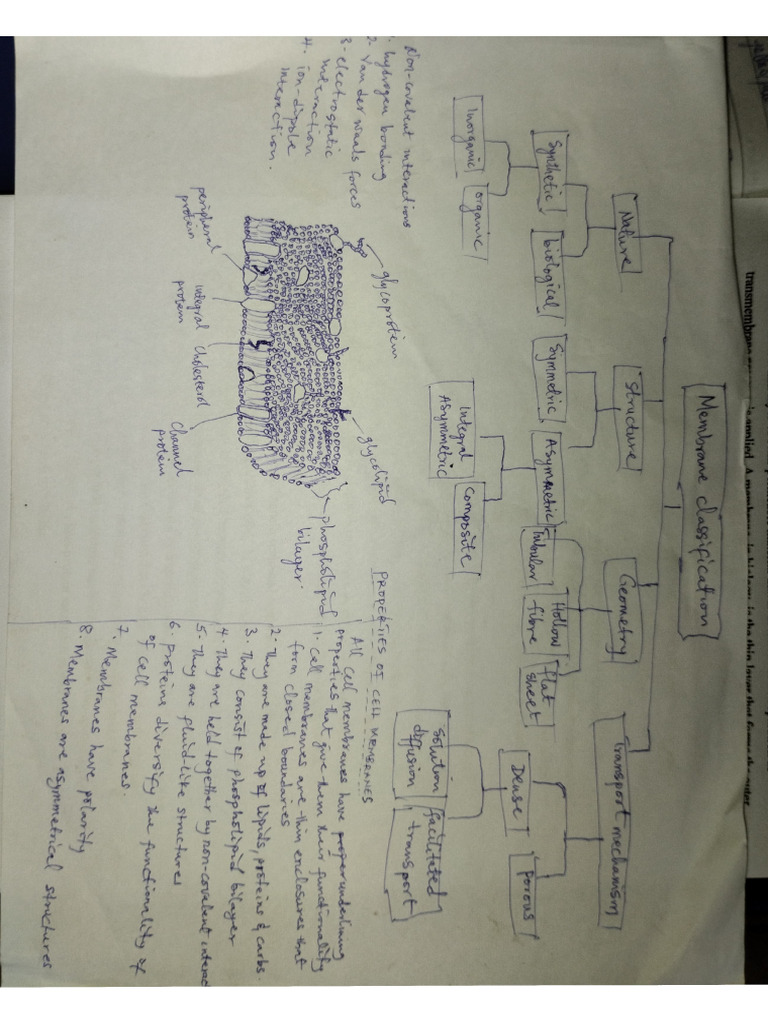 Membrane classification
Nature
Structure
Geometry
Transport mechanism
Synthetic
biological
Symmetric
Asymmetric
Tubular
Hollow
fibre
flat
sheet
Dense
Porous
Inorganic
organic
Integral
Asymmetric
Composite
Solution
diffusion
facilitated
transport
Non-covalent interactions
1. hydrogen bonding
2. Van der waals forces
3. electrostatic
interaction
4. ion-dipole
interaction.
glycoprotein
glycolipid
phospholipid
bilayer.
peripheral
protein
integral
protein
cholesterol
Channel
protein
PROPERTIES OF CELL MEMBRANES
All cell membranes have underlining
properties that give them their functionality
1. Cell membranes are thin enclosures that
form closed boundaries
2. They are made up of lipids, proteins & carbs.
3. They consist of phospholipid bilayer
4. They are held together by non-covalent interac
5. They are fluid-like structures
6. Proteins diversify the functionality of
of cell membranes.
7. Membranes have polarity
8. Membranes are asymmetrical structures
is applied. A membrane in biology is the thin layer that forms the outer